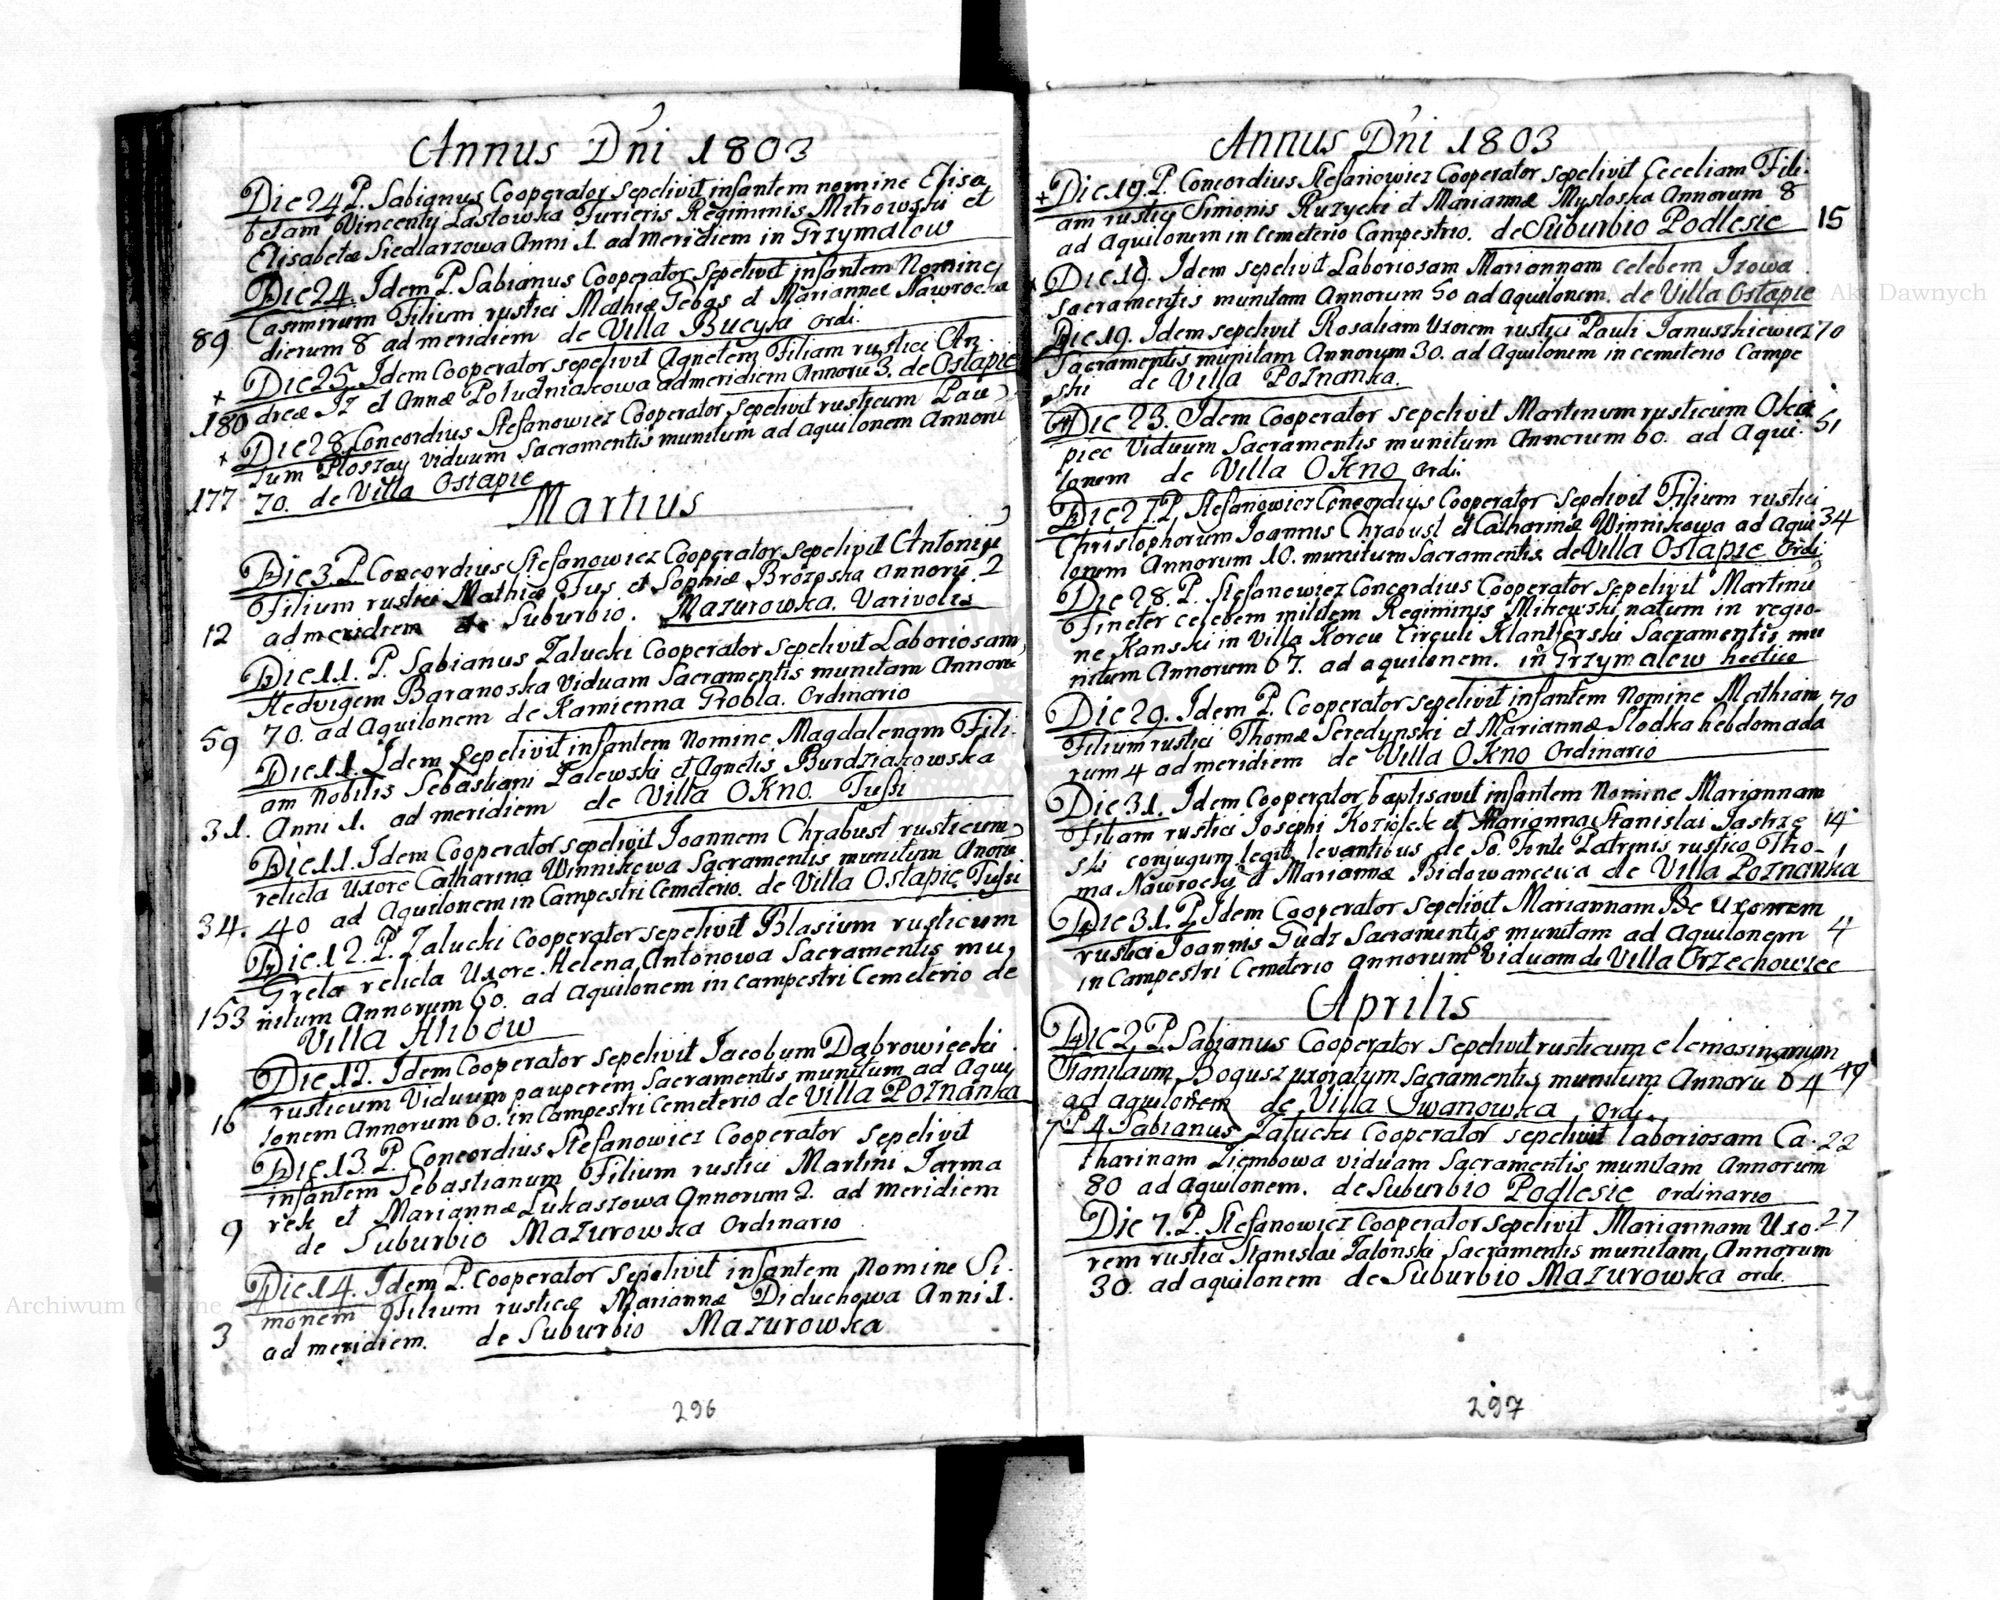 Annus Dni 1803
Die 24 P. Sabianus Cooperator sepelivit infantem nomine Elisa
betam Vincenty Lastowka Furieris Regiminis Mitrowski et
Elisabetæ Siedlarzowa Anni 1. ad meridiem in Grzymalow
Die 24. Idem P. Sabianus Cooperator sepelivit infantem Nomine
Casimirum Filium rustici Mathiæ Gebas et Mariannæ Nawrocka
89 dierum 8 ad meridiem de Villa Bucyki ordi.
+ Die 25. Idem Cooperator sepelivit Agnetem Filiam rustici An
180 dreæ Iz et Annæ Poludniakowa ad meridiem Annorū 3. de Ostapie
+ Die 28. Concordius Stefanowicz Cooperator sepelivit rusticum Pau
lum Ploszay viduum Sacramentis munitum ad aquilonem Annorū
177 70. de Villa Ostapie
Martius
Die 3. P. Concordius Stefanowicz Cooperator sepelivit Antoniū
Filium rustici Mathiæ Fus et Sophiæ Brozoska annorū 2
12 ad meridiem de Suburbio. Mazurowka. Variolis
Die 11. P. Sabianus Zalucki Cooperator sepelivit Laboriosam
Hedvigem Baranoska Viduam Sacramentis munitam Annorū
59 70. ad Aquilonem de Kamienna Grobla. Ordinario
Die 11. Idem sepelivit infantem Nomine Magdalenam Fili.
am Nobilis Sebastiani Zalewski et Agnetis Burdziakowska
31. Anni 1. ad meridiem de Villa OKno. Tussi
Die 11. Idem Cooperator sepelivit Joannem Chrabust rusticum
relicta Uxore Catharina Winnikowa Sacramentis munitum Anorū
34. 40 ad Aquilonem in Campestri Cemeterio. de Villa Ostapie Tussi
Die 12. P. Zalucki Cooperator sepelivit Blasium rusticum
Greta relicta Uxore Helena Antonowa Sacramentis mu,
153 nitum Annorum 60. ad aquilonem in campestri Cemeterio de
Villa Hlibow
Die 12. Idem Cooperator sepelivit Jacobum Dąbrowiecki
rusticum Viduum pauperem Sacramentis munitum ad Aqui,
16 lonem Annorum 60. in Campestri Cemeterio de Villa Poznanka
Die 13. P. Concordius Stefanowicz Cooperator sepelivit
infantem Sebastianum Filium rustici Martini Jarma
9 rek et Mariannæ Lukaszowa Annorum 2. ad meridiem
de Suburbio Mazurowka Ordinario
Die 14. Idem P. Cooperator sepelivit infantem Nomine Si.
monem Filium rusticæ Mariannæ Diduchowa Anni 1.
3 ad meridiem. de Suburbio Mazurowka
296
Annus Dni 1803
+ Die 19. P. Concordius Stefanowicz Cooperator sepelivit Ceceliam Fili.
am rustici Simionis Ruzycki et Mariannæ Mysloska Annorum 8
ad Aquilonem in Cemeterio Campestrio. de Suburbio Podlesie 15
Die 19. Idem sepelivit Laboriosam Mariannam celebem Izowa
Sacramentis munitam Annorum 50 ad aquilonem. de Villa Ostapie
Die 19. Idem sepelivit Rosaliam Uxorem rustici Pauli Januszkiewicz 70
Sacramentis munitam Annorum 30. ad Aquilonem in cemeterio Campe
ski de Villa Poznanka.
Die 23. Idem Cooperator sepelivit Martinum rusticum Oka
piec Viduum Sacramentis munitum Annorum 60. ad Aqui. 51
lonem de Villa OKno ordi.
Die 27. P. Stefanowicz Concordius Cooperator sepelivit Filium rustici
Christophorum Joannis Chrabust et Catharinæ Winnikowa ad Aqui 34
lonem Annorum 10. munitum Sacramentis de Villa Ostapie ordi
Die 28. P. Stefanowicz Concordius Cooperator sepelivit Martinū
Fineter celebem militem Regiminis Mitrowski, natum in regio-
ne Kanski in Villa Korcu Circuli Klantferski Sacramentis mu
nitum Annorum 67. ad aquilonem. in Grzymalow hectica
Die 29. Idem P. Cooperator sepelivit infantem Nomine Mathiam 70
Filium rustici Thomæ Seredynski et Mariannæ Slodka hebdomada
rum 4 ad meridiem de Villa OKno Ordinario
Die 31. Idem Cooperator baptisavit infantem Nomine Mariannam
Filiam rustici Josephi Koziolek et Marianna Stanislai Jastrzę 14
ski conjugum legit. levantibus de So. Fonte Patrinis rustico Tho-
ma Nawrocki et Marianna Bidowancowa de Villa Poznanka
Die 31. P. Idem Cooperator sepelivit Mariannam Be Uxorem
rustici Joannis Gudz Sacramentis munitam ad Aquilonem 4
in Campestri Cemeterio annorum 58 viduam de Villa Orzechowiec
Aprilis
Die 2. P. Sabianus Cooperator sepelivit rusticum elemosinarium
Stanilaum Bogusz uxoratum Sacramentis munitum Annorū 64 49
ad aquilonem de Villa Iwanowka Ordi.
P 4 Sabianus Zalucki Cooperator sepelivit laboriosam Ca. 22
tharinam Ziembowa viduam Sacramentis munitam Annorum
80 ad aquilonem. de Suburbio Podlesie ordinario
Die 7. P. Stefanowicz Cooperator sepelivit Mariannam Uxo. 27
rem rustici Stanislai Zalonski Sacramentis munitam Annorum
30. ad aquilonem de Suburbio Mazurowka orde.
297
Archiwum Główne Akt Dawnych